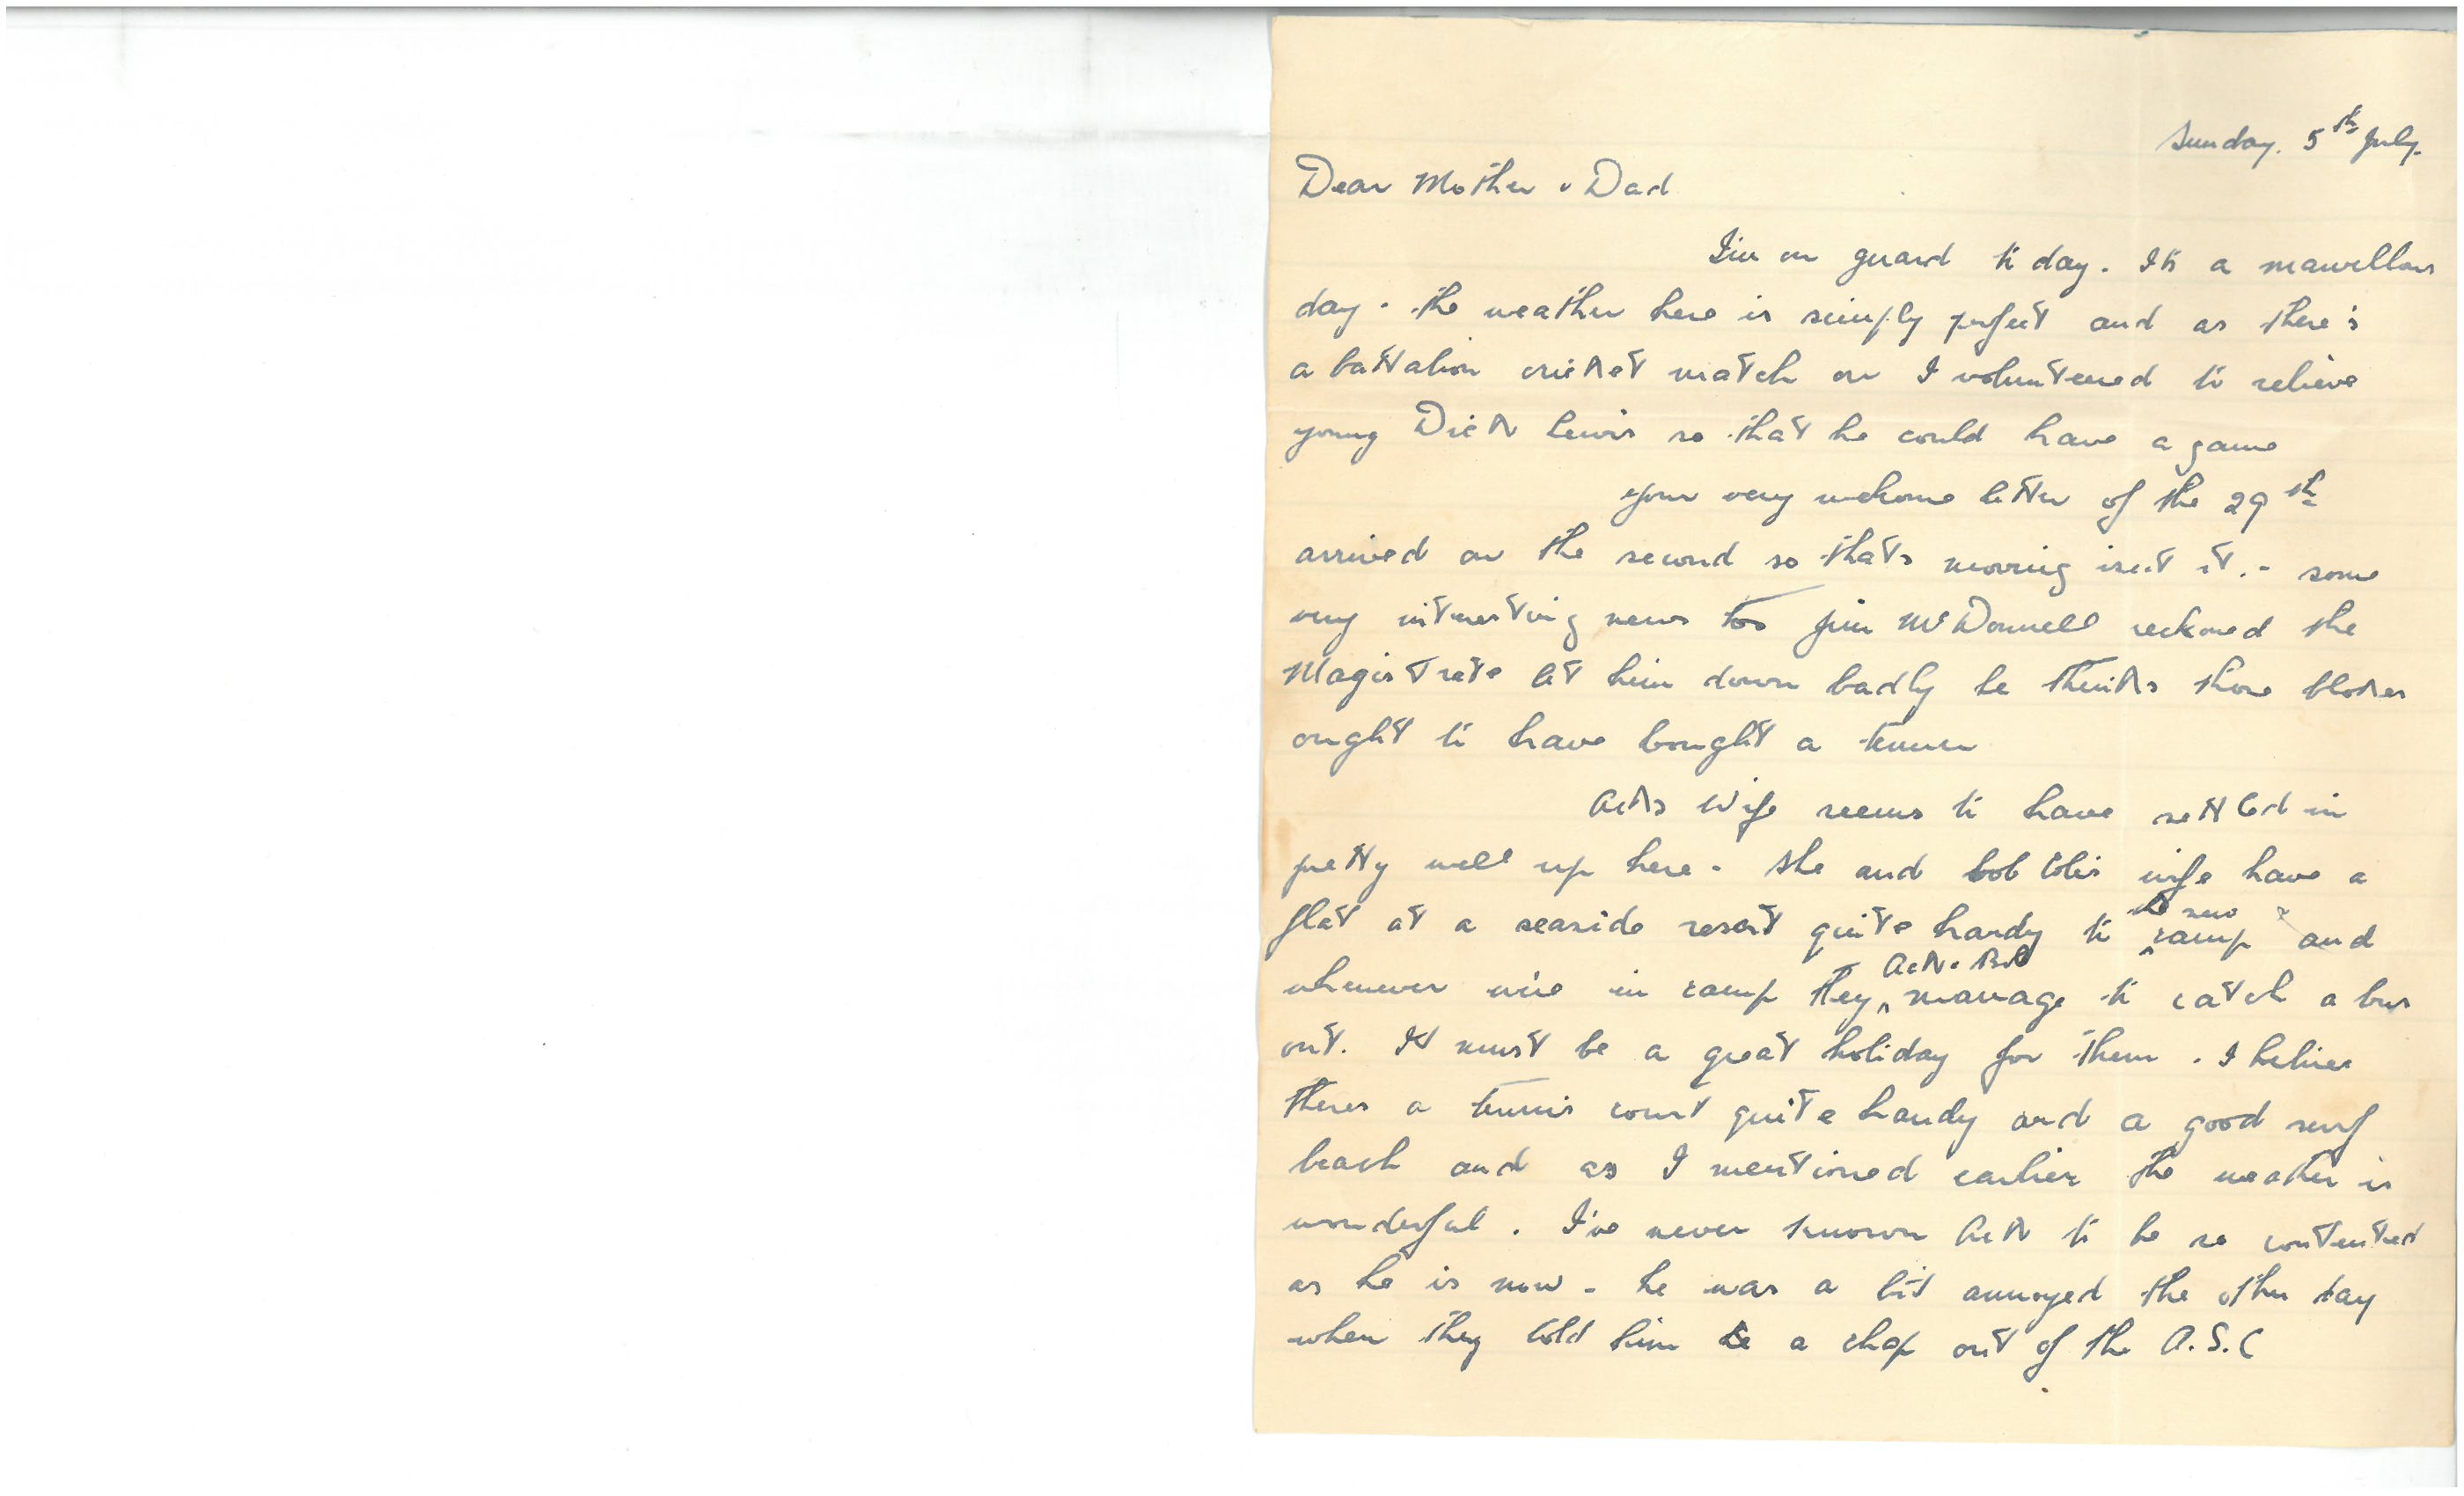 Sunday. 5th July.
Dear Mother & Dad
I'm on guard to day. Its a marvellous
day - the weather here is simply perfect and as there's
a battalion cricket match on I volunteered to relieve
young Dick Lewis so that he could have a game
your very welcome letter of the 29th
arrived on the second so thats moving isn't it. - some
very interesting news too Jim McDonnell reckoned the
Magistrate let him down badly he thinks those blokes
ought to have bought a tenner
Acks Wife seems to have settled in
pretty well up here - she and bob wife have a
flat at a seaside resort quite handy to camp and
whenever we're in camp they Ack & Bob manage to catch a bus
out. It must be a great holiday for them. I believe
theres a tennis court quite handy and a good surf
beach and as I mentioned earlier the weather is
wonderful. I've never known Ack to be so contented
as he is now - he was a bit annoyed the other day
when they told him a chap out of the A.S.C